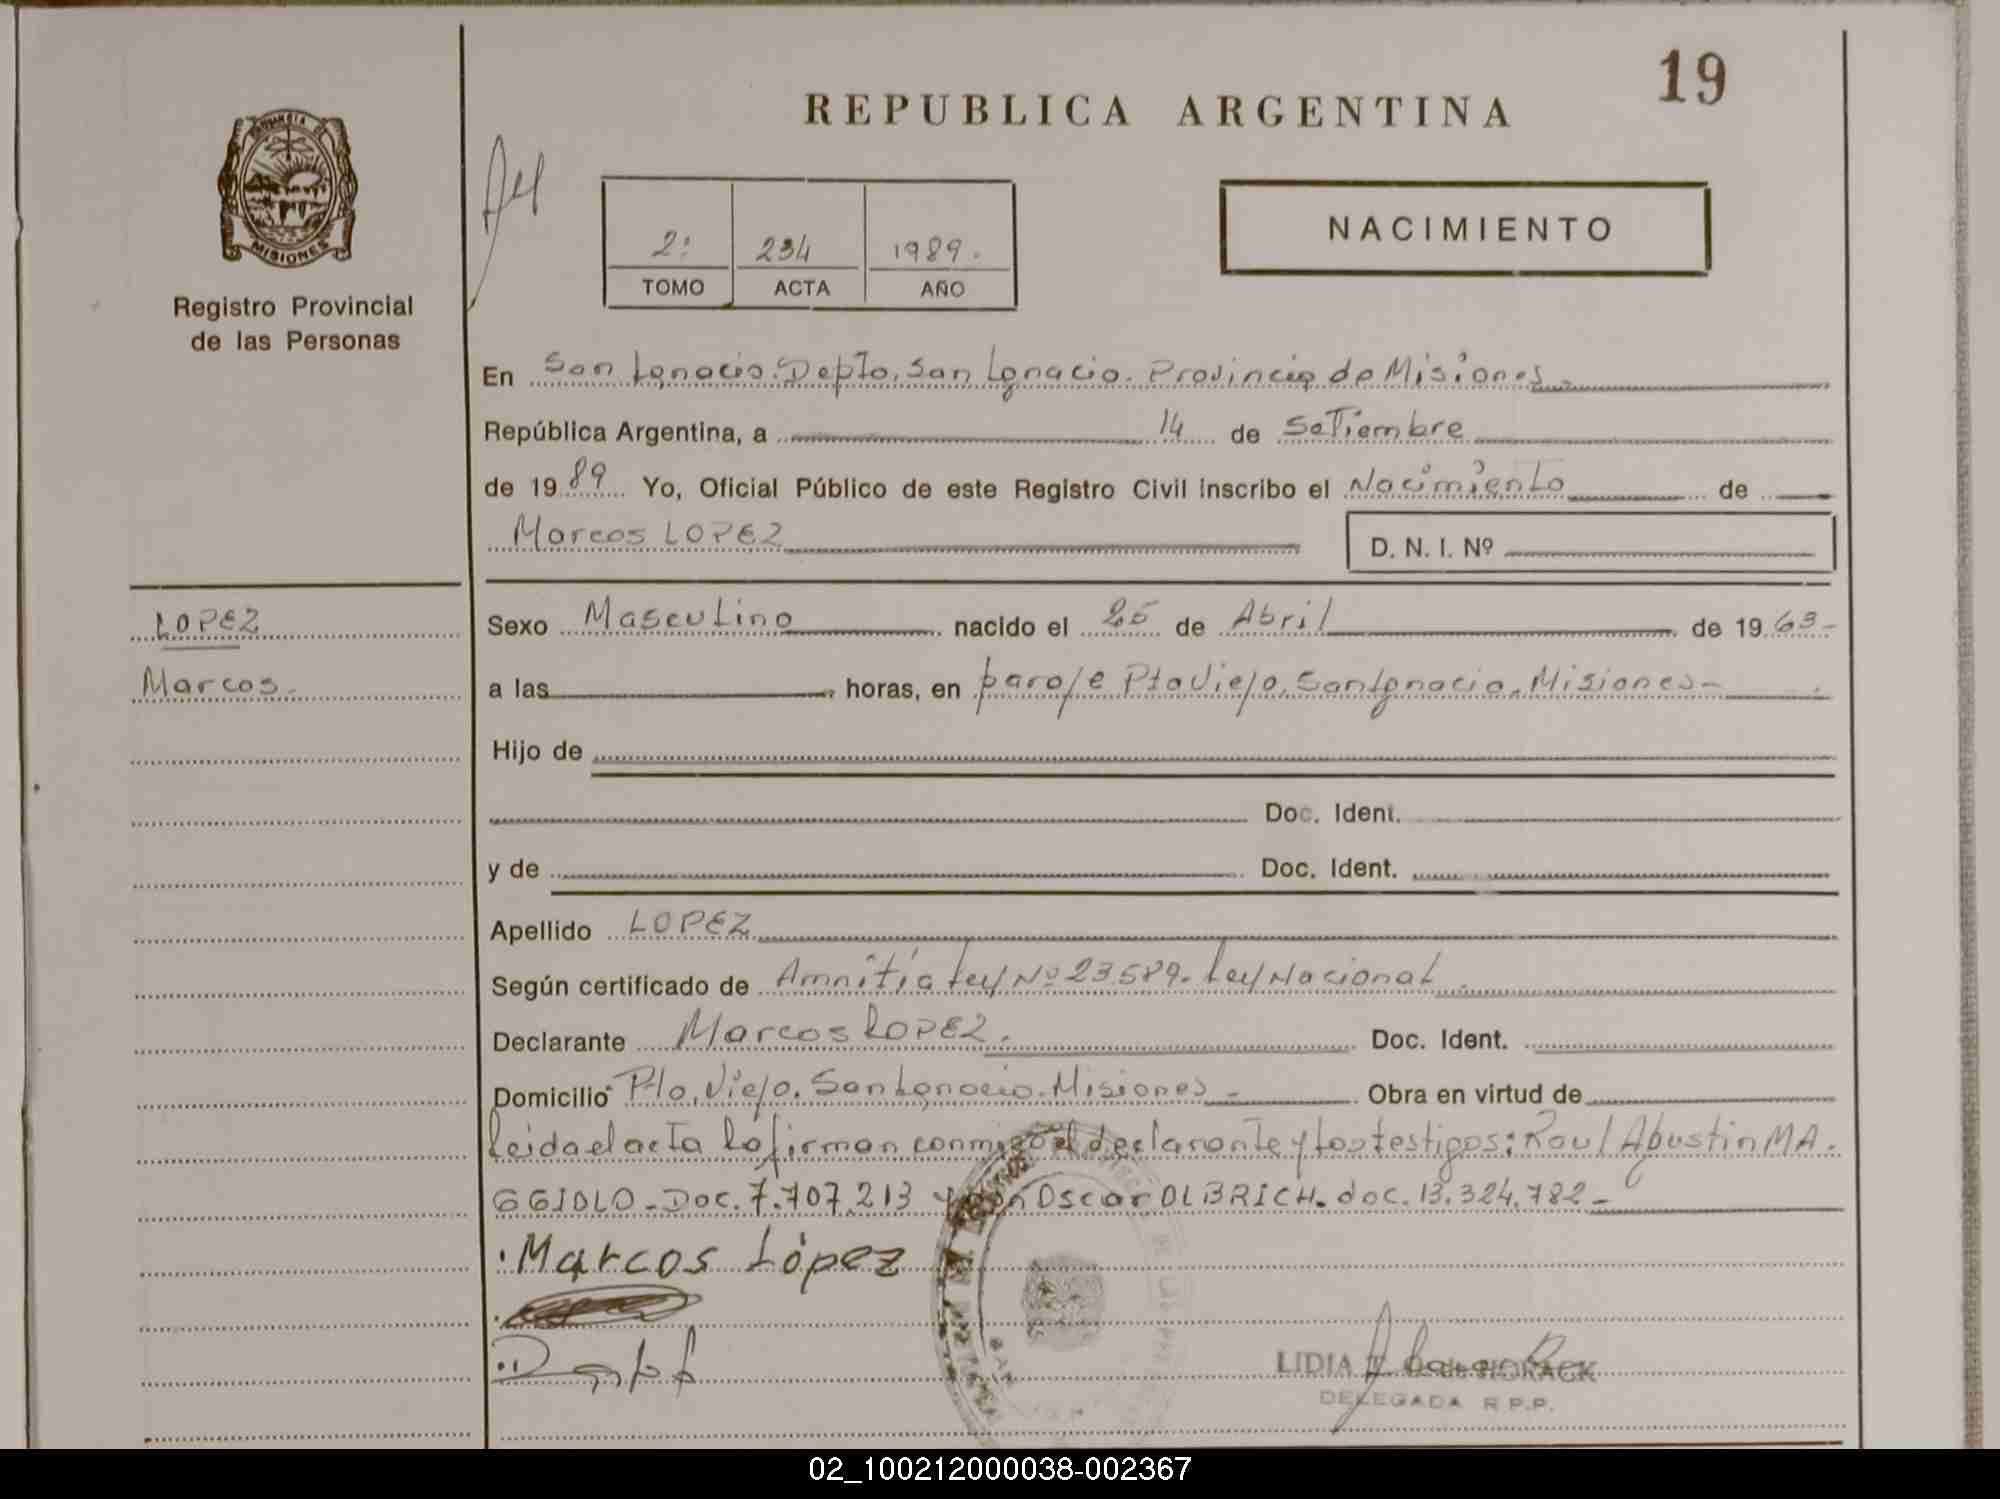 19
REPUBLICA ARGENTINA
NACIMIENTO
2: 234 1989.
TOMO ACTA AÑO
MISIONES
Registro Provincial
de las Personas
En San Ignacio. Depto. San Ignacio. Provincia de Misiones.
República Argentina, a 14 de SeTiembre
de 1989 Yo, Oficial Público de este Registro Civil inscribo el Nacimiento de
Marcos LOPEZ D. N. I. Nº
LOPEZ
Marcos.
Sexo Masculino nacido el 25 de Abril de 1963-
a las horas, en paraje Pto Viejo. San Ignacio. Misiones-
Hijo de
Doc. Ident.
y de Doc. Ident.
Apellido LOPEZ
Según certificado de Amnitía Ley Nº 23.589. Ley Nacional
Declarante Marcos LOPEZ. Doc. Ident.
Domicilio Pto. Viejo. San Ignacio. Misiones - Obra en virtud de
Leida el acta la firman conmigo el declarante y los testigos: Raul Agustin MA.
GGIOLO - Doc. 7.707.213 y Oscar OLBRICH. doc. 13.324.782-
Marcos López
LIDIA HORACK
DELEGADA R.P.P.
02_100212000038-002367